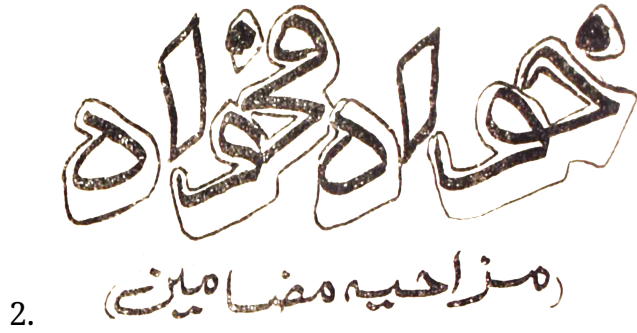 خواہ مخواہ
(مزاحیہ مضامین)
2.